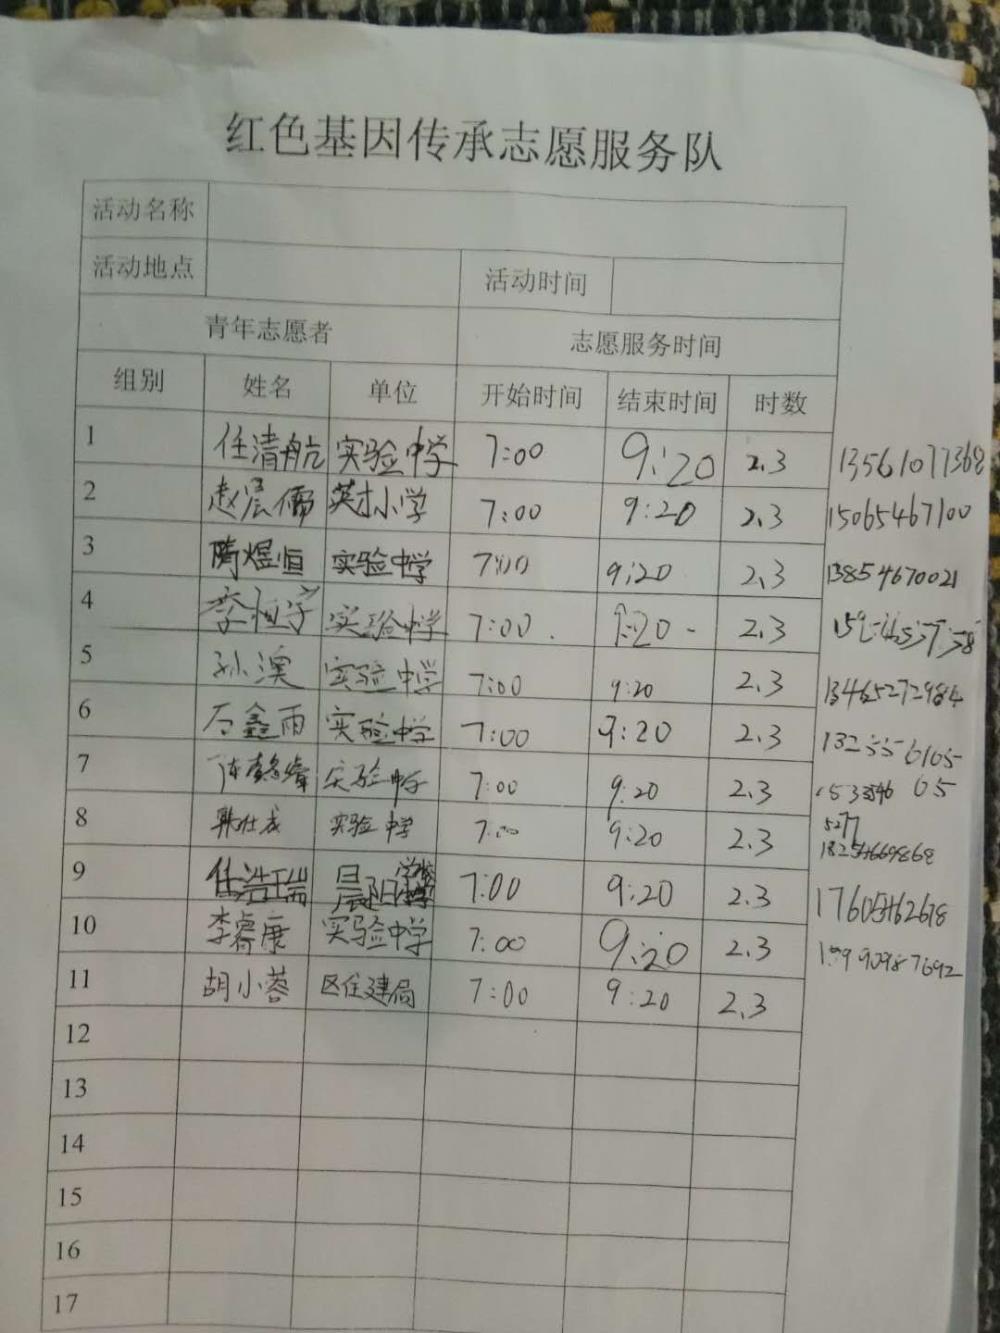 红色基因传承志愿服务队
活动名称
活动地点 活动时间
青年志愿者 志愿服务时间
组别 姓名 单位 开始时间 结束时间 时数
1 任清航 实验中学 7:00 9:20 2.3 13561077368
2 赵晨儒 英才小学 7:00 9:20 2.3 15065467100
3 隋煜恒 实验中学 7:00 9:20 2.3 13854670021
4 实验中学 7:00 9:20 2.3
5 孙澳 实验中学 7:00 9:20 2.3 13465272984
6 石鑫雨 实验中学 7:00 9:20 2.3
7 实验中学 7:00 9:20 2.3
8 韩仕成 实验中学 7:00 9:20 2.3
9 任浩瑞 晨阳学校 7:00 9:20 2.3
10 李睿康 实验中学 7:00 9:20 2.3
11 胡小蓉 区住建局 7:00 9:20 2.3
12
13
14
15
16
17